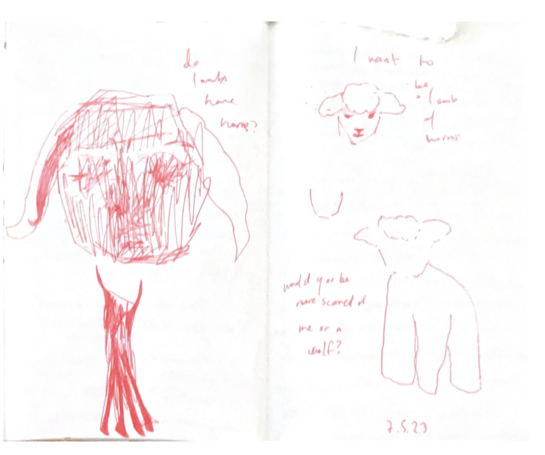 do
lambs
have
horns?
I want to
be
a lamb
of
horns
would you be
more scared of
me or a
wolf?
7.5.23